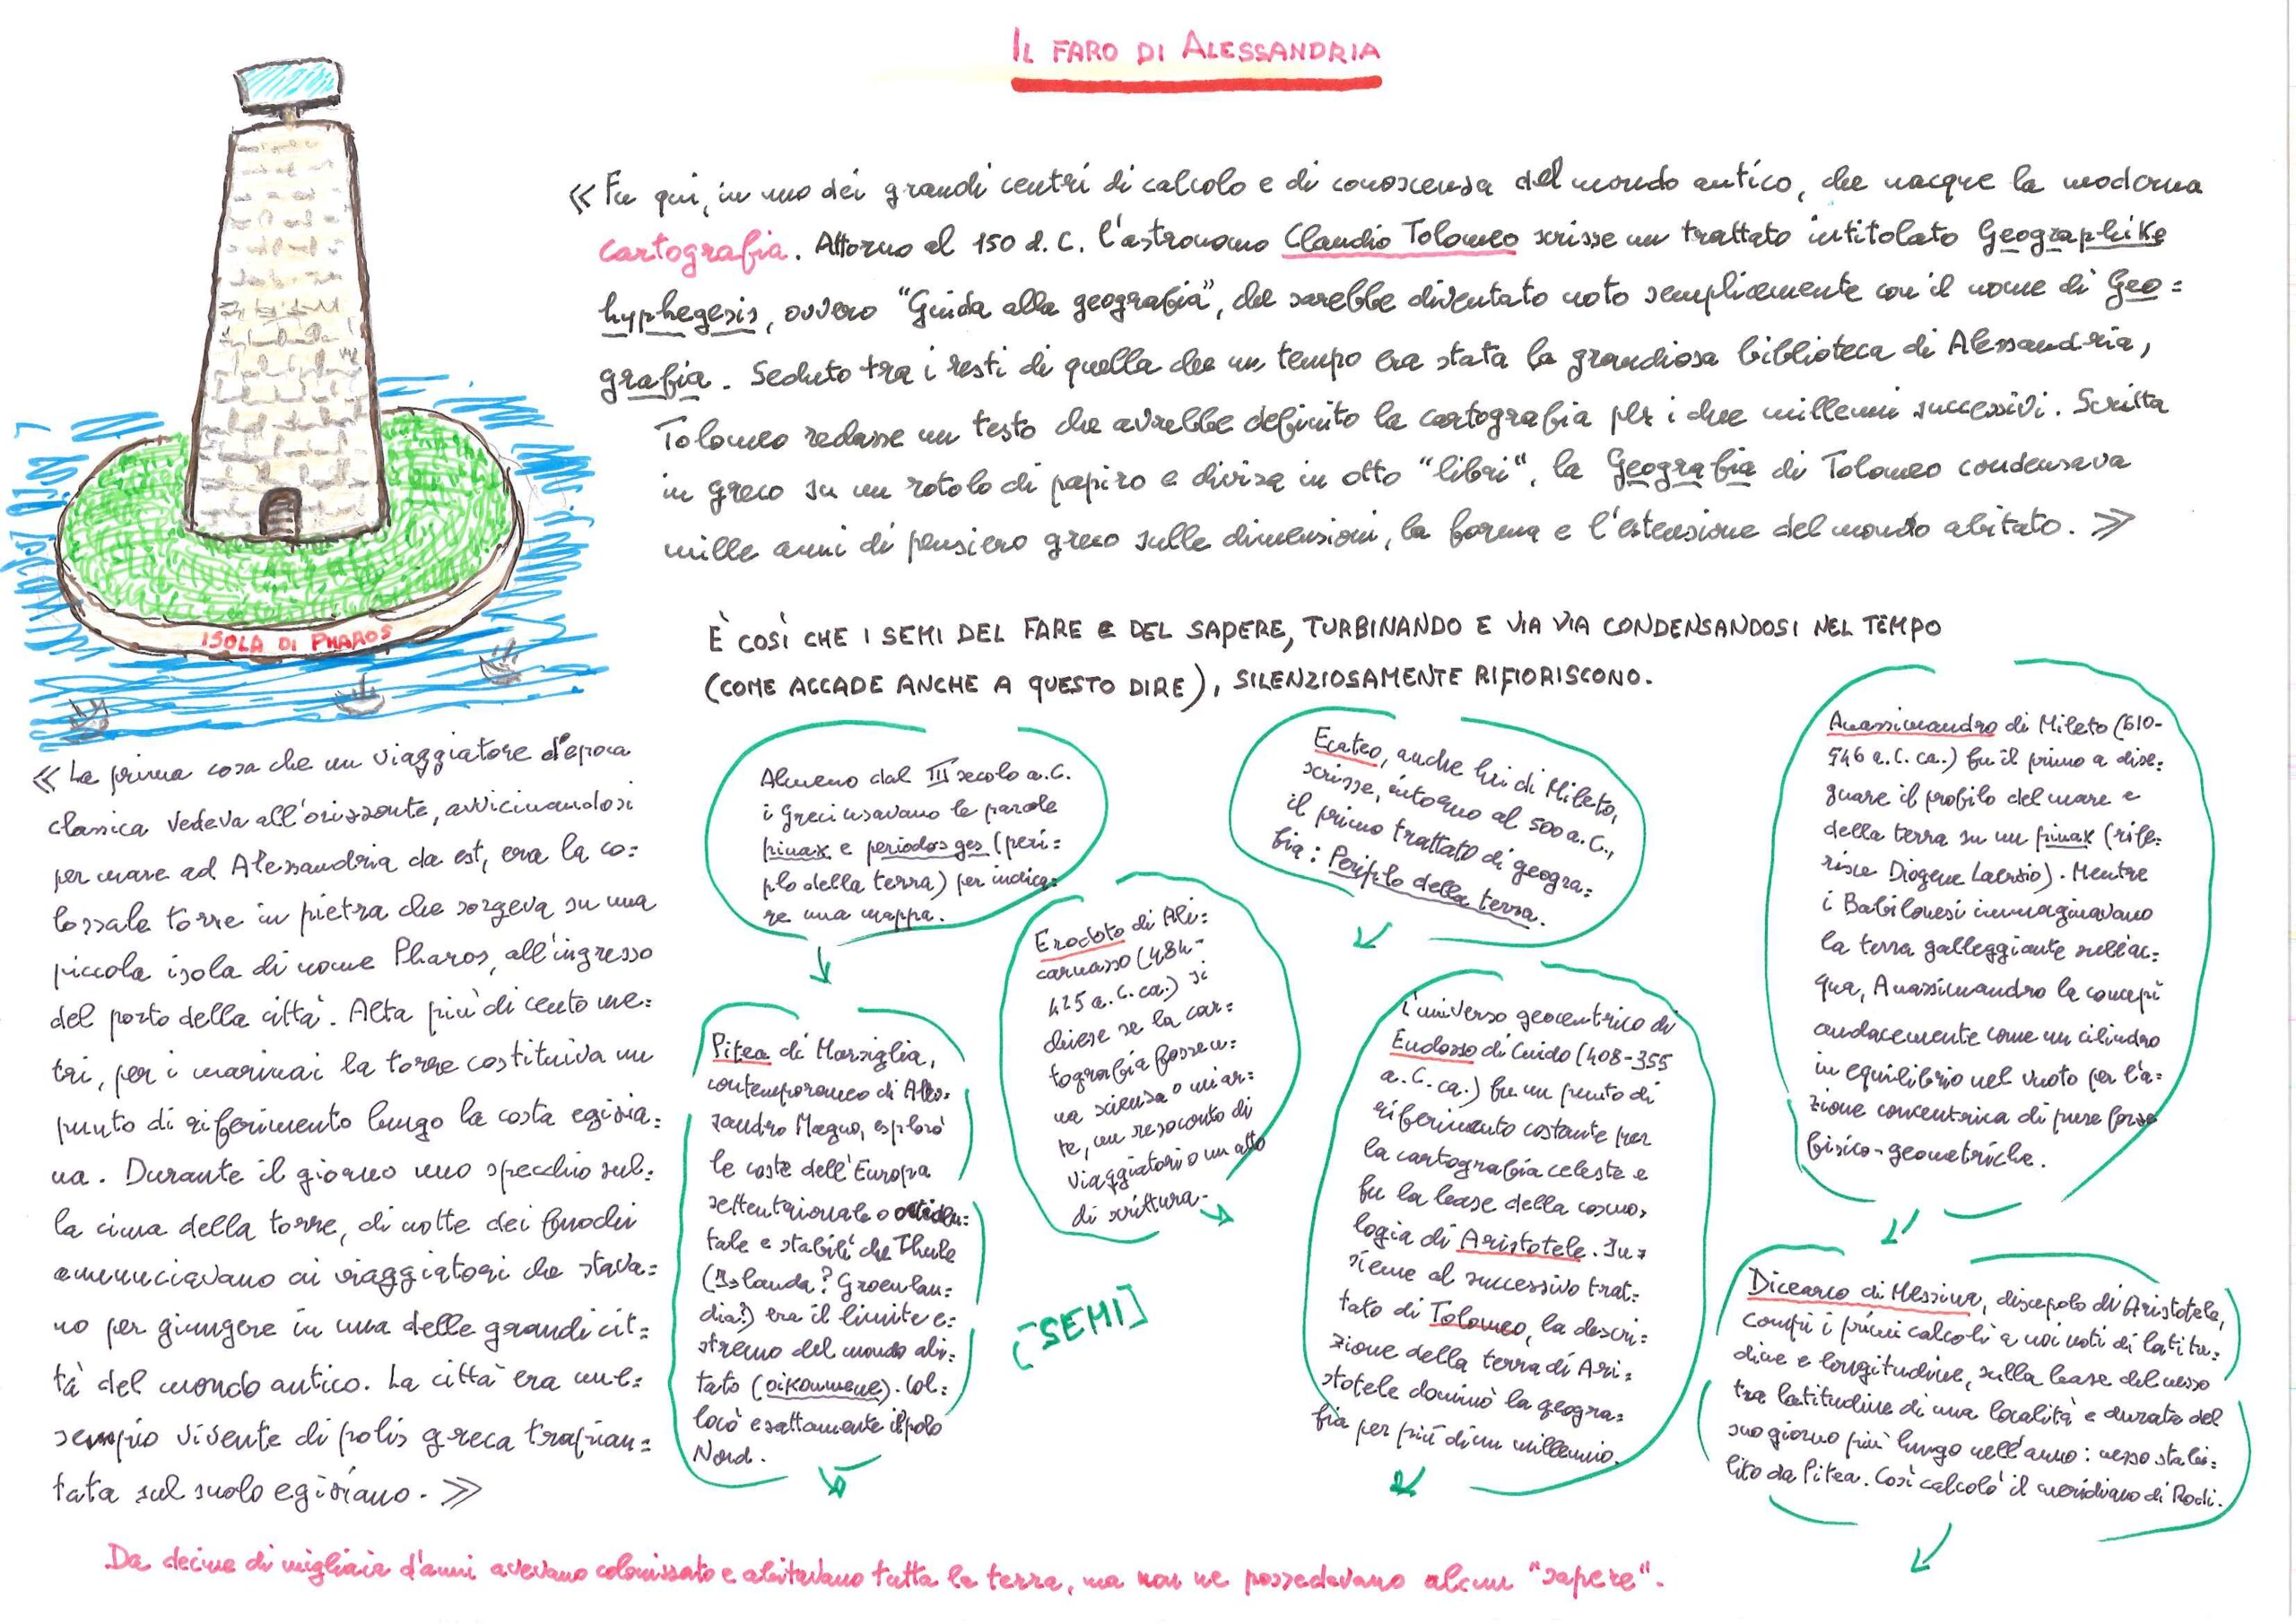 IL FARO DI ALESSANDRIA
« Fu qui, in uno dei grandi centri di calcolo e di conoscenza del mondo antico, che nacque la moderna
cartografia. Attorno al 150 d. C. l'astronomo Claudio Tolomeo scrisse un trattato intitolato Geographike
hyphegesis, ovvero "Guida alla geografia", che sarebbe diventato noto semplicemente con il nome di Geo=
grafia. Seduto tra i resti di quella che un tempo era stata la grandiosa biblioteca di Alessandria,
Tolomeo redasse un testo che avrebbe definito la cartografia per i due millenni successivi. Scritta
in greco su un rotolo di papiro e divisa in otto "libri", la Geografia di Tolomeo condensava
mille anni di pensiero greco sulle dimensioni, la forma e l'estensione del mondo abitato. »
È COSÌ CHE I SEMI DEL FARE E DEL SAPERE, TURBINANDO E VIA VIA CONDENSANDOSI NEL TEMPO
(COME ACCADE ANCHE A QUESTO DIRE), SILENZIOSAMENTE RIFIORISCONO.
ISOLA DI PHAROS
« La prima cosa che un viaggiatore d'epoca
classica vedeva all'orizzonte, avvicinandosi
per mare ad Alessandria da est, era la co=
lossale torre in pietra che sorgeva su una
piccola isola di nome Pharos, all'ingresso
del porto della città. Alta più di cento me=
tri, per i marinai la torre costituiva un
punto di riferimento lungo la costa egizia=
na. Durante il giorno uno specchio sul=
la cima della torre, di notte dei fuochi
annunciavano ai viaggiatori che stava=
no per giungere in una delle grandi cit=
tà del mondo antico. La città era un e=
sempio vivente di polis greca trapian=
tata sul suolo egiziano. »
Almeno dal III secolo a.C.
i Greci usavano le parole
pinax e periodos ges (peri=
plo della terra) per indica=
re una mappa.
Ecateo, anche lui di Mileto,
scrisse, intorno al 500 a.C.,
il primo trattato di geogra=
fia: Periplo della terra.
Anassimandro di Mileto (610-
546 a.C. ca.) fu il primo a dise=
gnare il profilo del mare e
della terra su un pinax (rife=
risce Diogene Laerzio). Mentre
i Babilonesi immaginavano
la terra galleggiante sull'ac=
qua, Anassimandro la concepì
audacemente come un cilindro
in equilibrio nel vuoto per l'a=
zione concentrica di pure forze
fisico-geometriche.
Erodoto di Ali=
carnasso (484-
425 a.C. ca.) si
chiese se la car=
tografia fosse u=
na scienza o un'ar=
te, un resoconto di
viaggiatori o un atto
di scrittura.
Pitea di Marsiglia,
contemporaneo di Ales=
sandro Magno, esplorò
le coste dell'Europa
settentrionale o occiden=
tale e stabilì che Thule
(Islanda? Groenlan=
dia?) era il limite e=
stremo del mondo abi=
tato (oikoumene). Col=
locò esattamente il polo
Nord.
[SEMI]
L'universo geocentrico di
Eudosso di Cnido (408-355
a.C. ca.) fu un punto di
riferimento costante per
la cartografia celeste e
fu la base della cosmo=
logia di Aristotele. In=
sieme al successivo trat=
tato di Tolomeo, la descri=
zione della terra di Ari=
stotele dominò la geogra=
fia per più di un millennio.
Dicearco di Messina, discepolo di Aristotele,
compì i primi calcoli a noi noti di latitu=
dine e longitudine, sulla base del nesso
tra latitudine di una località e durata del
suo giorno più lungo nell'anno: nesso stabi=
lito da Pitea. Così calcolò il meridiano di Rodi.
Da decine di migliaia d'anni avevano colonizzato e abitavano tutta la terra, ma non ne possedevano alcun "sapere".